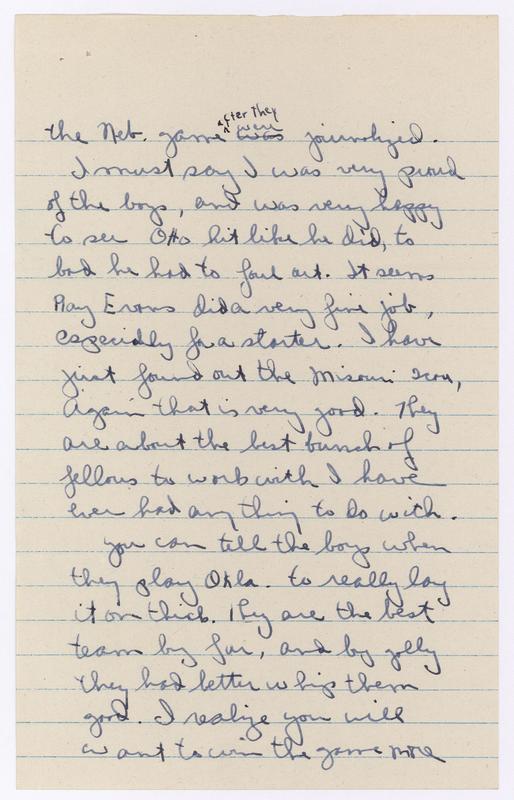 after they
the Neb. game were was journalized.
I must say I was very proud
of the boys, and was very happy
to see Otto hit like he did, to
bad he had to foul out. It seems
Ray Evans did a very fine job,
especially for a starter. I have
just found out the Missouri scou,
again that is very good. They
are about the best bunch of
fellows to work with I have
ever had any thing to do with.
you can tell the boys when
they play Okla. to really lay
it on thick. They are the best
team by far, and by golly
they had better whip them
good. I realize you will
want to win the game more